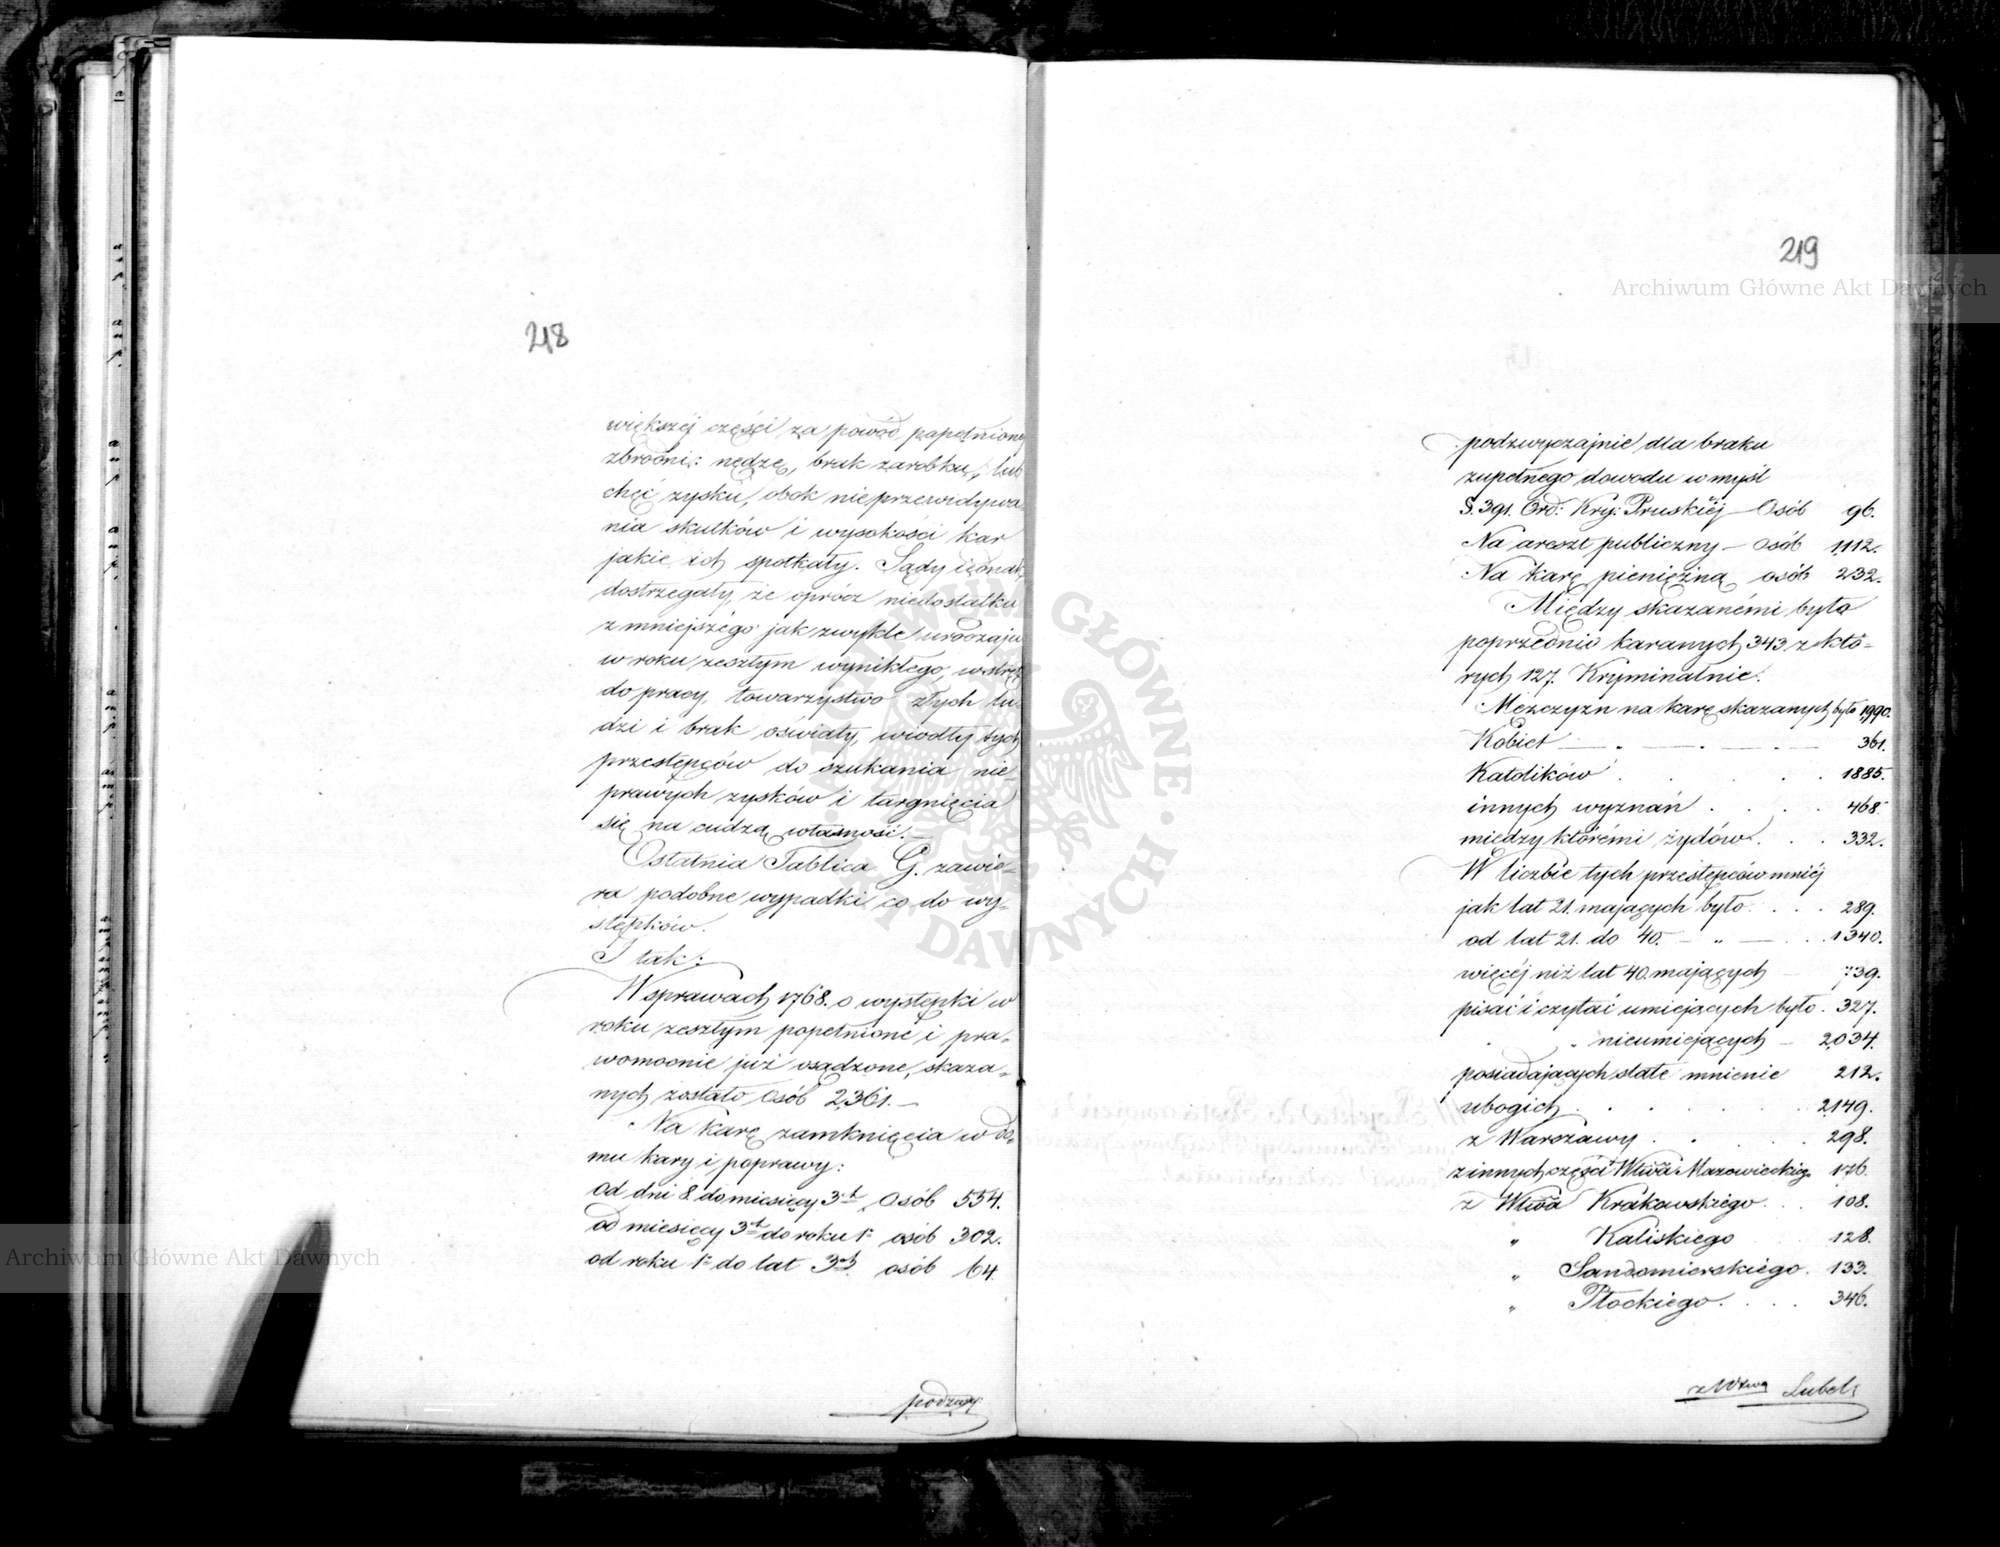 218
większéj części za powód popełnionej
zbrodni: nędzę, brak zarobku, lub
chęć zysku, obok nieprzewidywa-
nia skutków i wysokości kar
jakie ich spotkały. Sądy jednak
dostrzegały, że oprócz niedostatku
z mniejszego jak zwykle urodzaju
w roku zeszłym wynikłego, wstręt
do pracy, towarzystwo złych lu-
dzi i brak oświaty, wiodły tych
przestępców do szukania nie-
prawych zysków i targnięcia
się na cudzą własność.—
Ostatnia Tablica G. zawie-
ra podobne wypadki co do wy-
stępków.
I tak:
W sprawach 1768. o występki w
roku zeszłym popełnione i pra-
womocnie już osądzone, skaza-
nych zostało osób 2,361.—
Na karę zamknięcia w do-
mu kary i poprawy:
od dni 8. do miesięcy 3ch osób 554.
od miesięcy 3ch do roku 1o osób 302.
od roku 1o do lat 3ch osób 64.
podzwy
219
podzwyczajnie dla braku
zupełnego dowodu w myśl
§. 391. Ord: Kry: Pruskiéj — Osób 96.
Na areszt publiczny — osób 1,112.
Na karę pieniężną osób 232.
Między skazanémi było
poprzednio karanych 343 z któ-
rych 127. Kryminalnie.
Mężczyzn na karę skazanych było 1,990.
Kobiet — . — . — . — 361.
Katolików . . . . 1885.
innych wyznań . . . . 468.
między któremi żydów . . . 332.
W liczbie tych przestępców mniéj
jak lat 21. mających było . . . 289.
od lat 21. do 40. — „ — . . 1340.
więcéj niż lat 40. mających — 739.
pisać i czytać umiejących było . 327.
„ nieumiejących — 2,034.
posiadających stałe mnienie 212.
ubogich . . . . . . 2149.
z Warszawy . . . . . 298.
z innych części Wtwa Mazowieckieg. 176.
z Wtwa Krakowskiego . . . 108.
„ Kaliskiego 128.
„ Sandomierskiego . 133.
„ Płockiego . . . . 346.
z Wtwa Lubels
Archiwum Główne Akt Dawnych
Archiwum Główne Akt Dawnych
ARCHIWUM GŁÓWNE AKT DAWNYCH